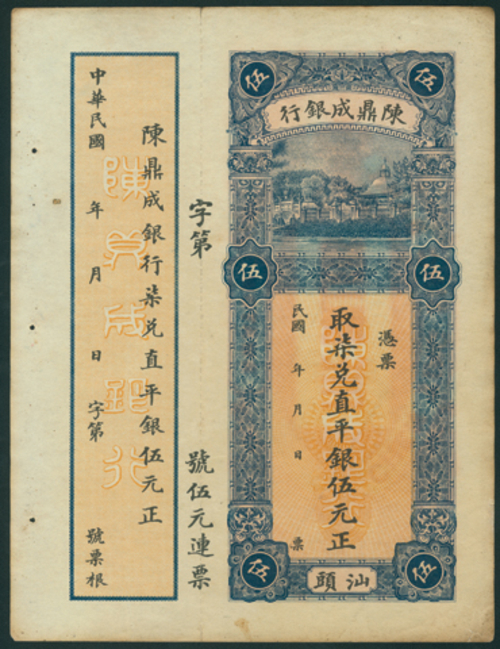 陳鼎成銀行
伍
伍
伍
伍
伍
伍
憑票
取柒兑直平銀伍元正
民國 年 月 日 票
汕頭
字第 號伍元連票
陳鼎成銀行柒兑直平銀伍元正
中華民國 年 月 日 字第 號票根